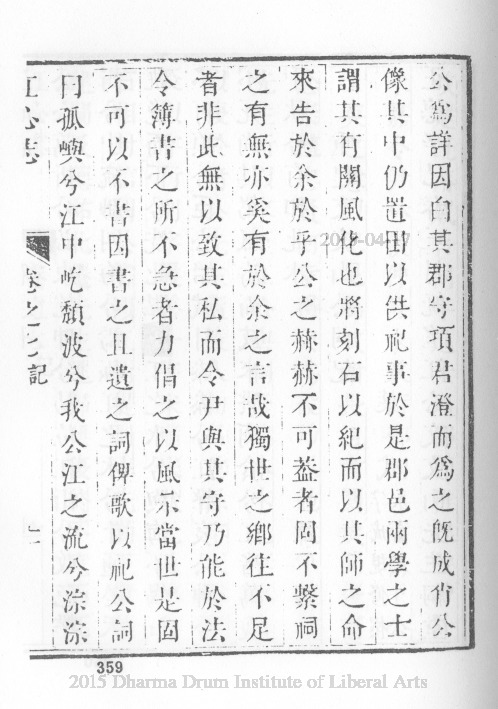 公爲詳因白其郡守項君澄而爲之旣成肖公
像其中仍置田以供祀事於是郡邑兩學之士
謂其有關風化也將刻石以紀而以其師之命
來告於余於乎公之赫赫不可葢者固不繫祠
之有無亦奚有於余之言哉獨世之鄉往不足
者非此無以致其私而令尹與其守乃能於法
令簿書之所不急者力倡之以風示當世是固
不可以不書因書之且遺之詞俾歌以祀公詞
曰孤嶼兮江中屹頹波兮我公江之流兮淙淙
江心志
卷之七
記
359
2015 Dharma Drum Institute of Liberal Arts